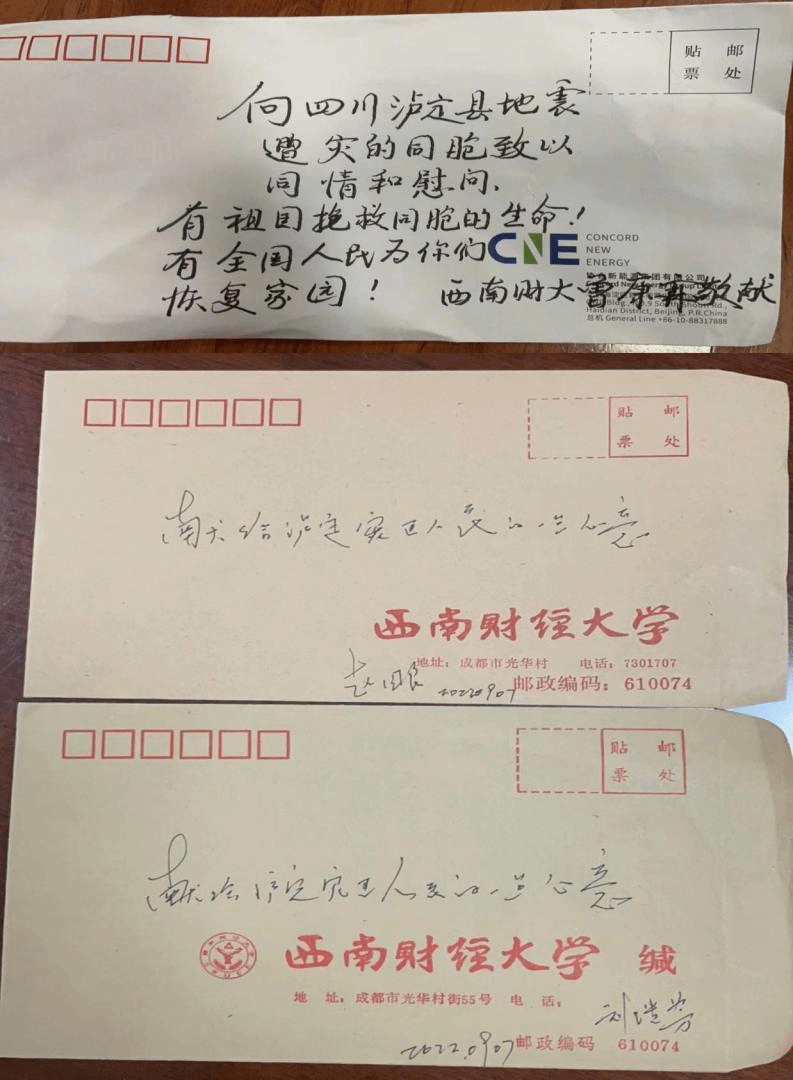 贴 邮
票 处
向四川泸定县地震
遭灾的同胞致以
同情和慰问.
有祖国挽救同胞的生命!
有全国人民为你们
恢复家园!
CNE
CONCORD
NEW
ENERGY
西南财大曹康再敬献
Haidian District, Beijing, P.R.China
总机 General Line +86-10-88317888
贴 邮
票 处
献给泸定灾区人民的一点心意
西南财经大学
地址:成都市光华村 电话:7301707
邮政编码:610074
20220907
贴 邮
票 处
献给泸定灾区人民的一点心意
西南财经大学 缄
地 址:成都市光华村街55号 电 话:
2022.0907
邮政编码 610074